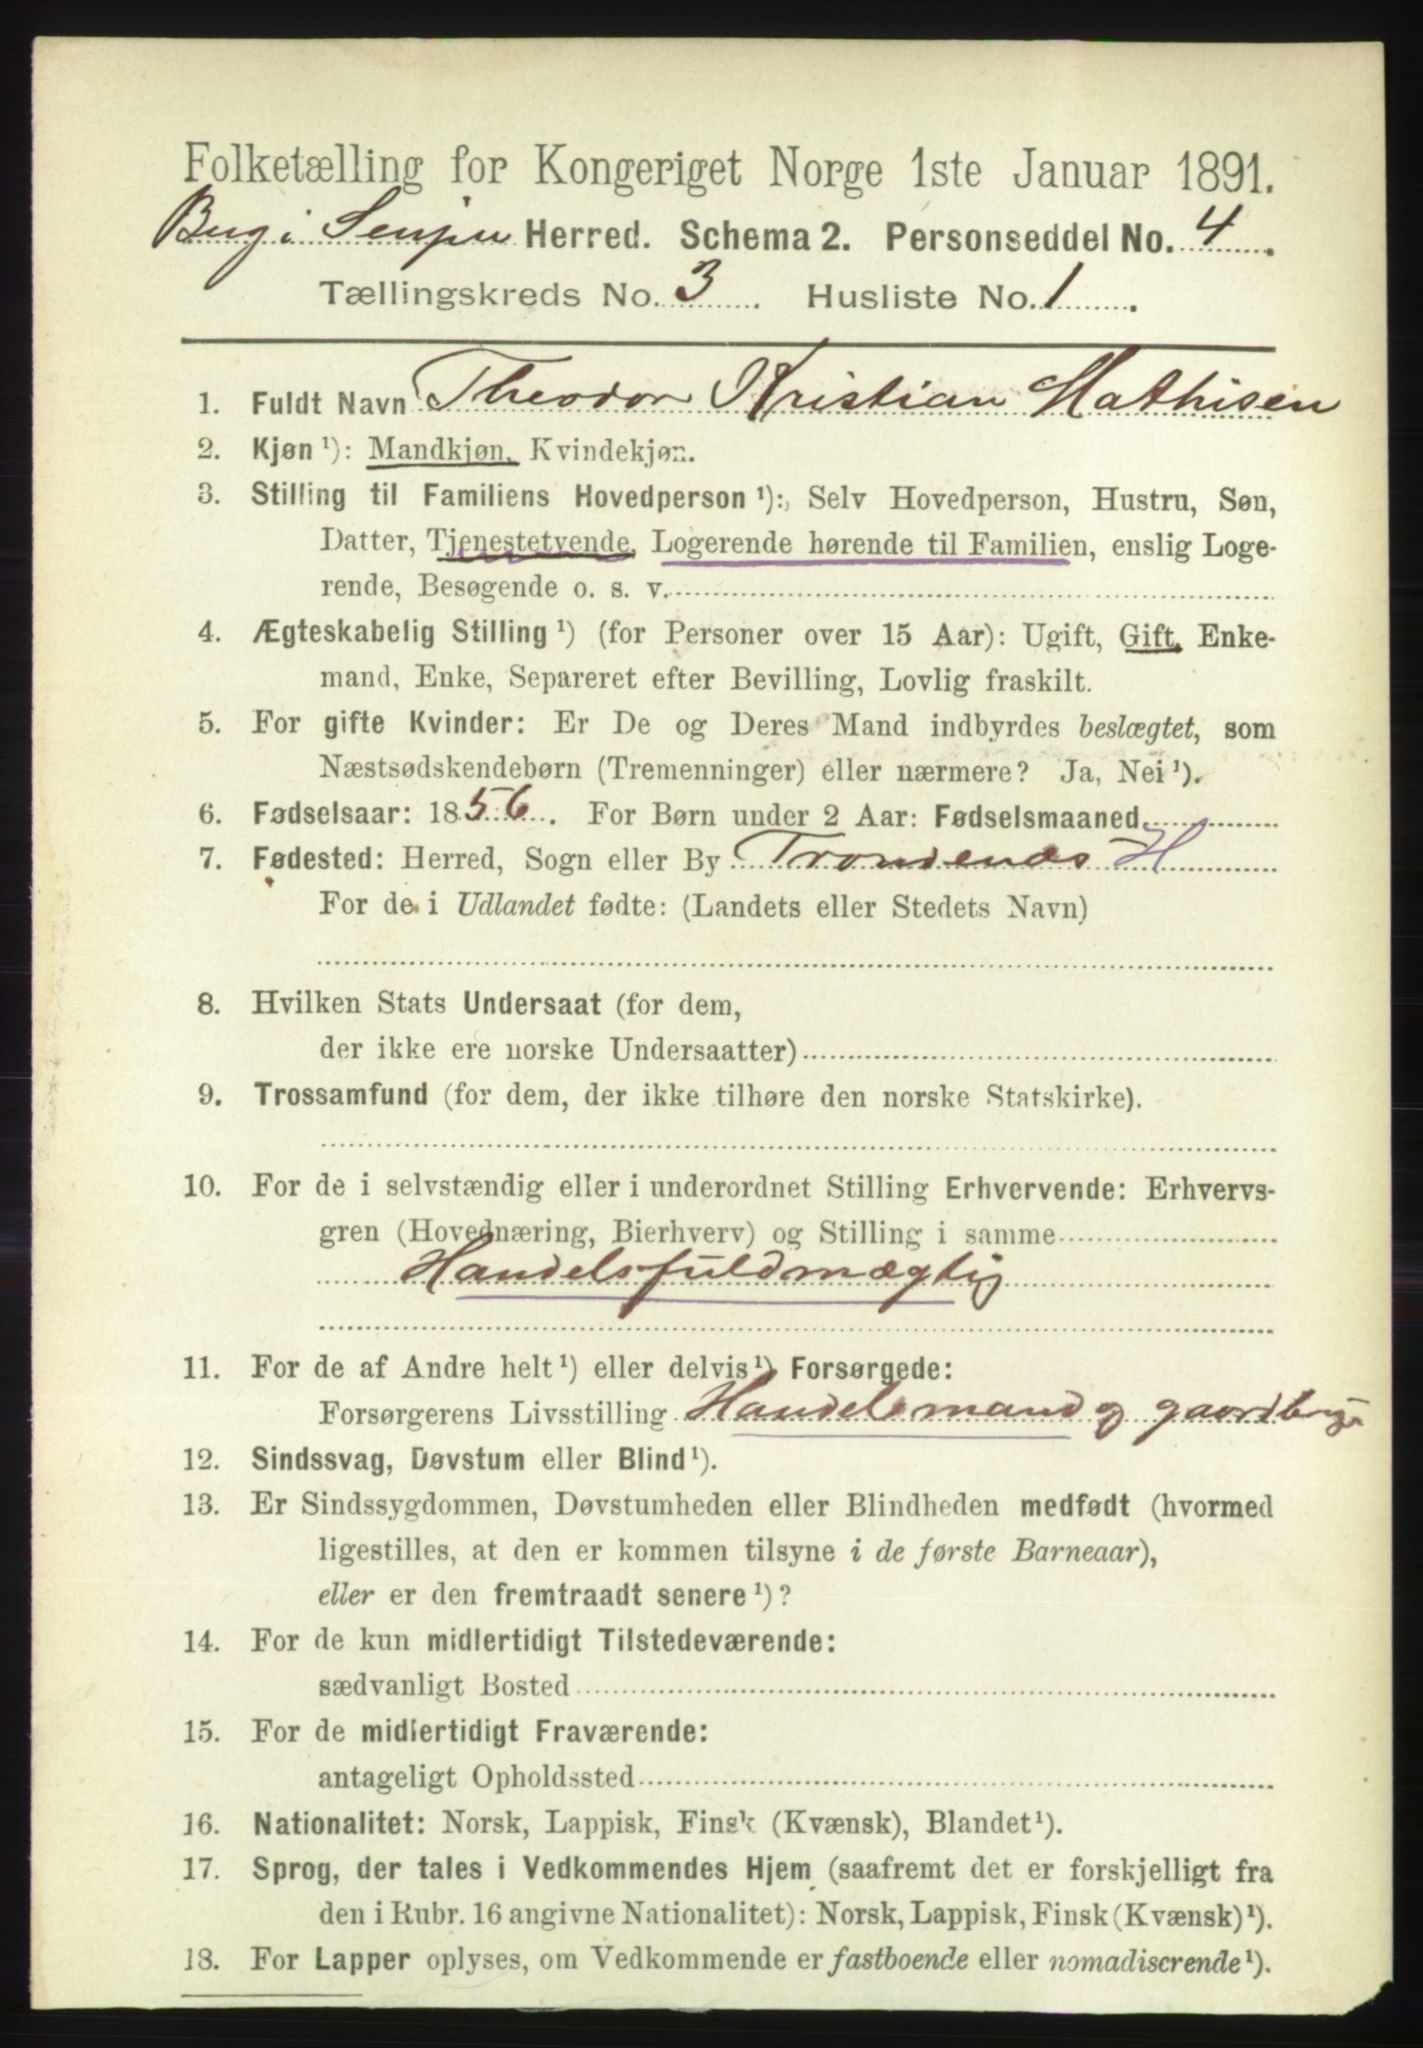 Folketælling for Kongeriget Norge 1ste Januar 1891.
Berg i Senjen Herred. Schema 2. Personseddel No. 4.
Tællingskreds No. 3. Husliste No. 1.
1. Fuldt Navn Theodor Kristian Mathisen
2. Kjøn ¹): Mandkjøn, Kvindekjøn.
3. Stilling til Familiens Hovedperson ¹): Selv Hovedperson, Hustru, Søn,
Datter, Tjenestetyende, Logerende hørende til Familien, enslig Loge-
rende, Besøgende o. s. v.
4. Ægteskabelig Stilling ¹) (for Personer over 15 Aar): Ugift, Gift, Enke-
mand, Enke, Separeret efter Bevilling, Lovlig fraskilt.
5. For gifte Kvinder: Er De og Deres Mand indbyrdes beslægtet, som
Næstsødskendebørn (Tremenninger) eller nærmere? Ja, Nei ¹).
6. Fødselsaar: 1856. For Børn under 2 Aar: Fødselsmaaned
7. Fødested: Herred, Sogn eller By Trondenæs H
For de i Udlandet fødte: (Landets eller Stedets Navn)
8. Hvilken Stats Undersaat (for dem,
der ikke ere norske Undersaatter)
9. Trossamfund (for dem, der ikke tilhøre den norske Statskirke).
10. For de i selvstændig eller i underordnet Stilling Erhvervende: Erhvervs-
gren (Hovednæring, Bierhverv) og Stilling i samme
Handelsfuldmægtig
11. For de af Andre helt ¹) eller delvis ¹) Forsørgede:
Forsørgerens Livsstilling Handelsmand og gaardbruger
12. Sindssvag, Døvstum eller Blind ¹).
13. Er Sindssygdommen, Døvstumheden eller Blindheden medfødt (hvormed
ligestilles, at den er kommen tilsyne i de første Barneaar),
eller er den fremtraadt senere ¹)?
14. For de kun midlertidigt Tilstedeværende:
sædvanligt Bosted
15. For de midlertidigt Fraværende:
antageligt Opholdssted
16. Nationalitet: Norsk, Lappisk, Finsk (Kvænsk), Blandet ¹).
17. Sprog, der tales i Vedkommendes Hjem (saafremt det er forskjelligt fra
den i Rubr. 16 angivne Nationalitet): Norsk, Lappisk, Finsk (Kvænsk) ¹).
18. For Lapper oplyses, om Vedkommende er fastboende eller nomadiserende ¹).